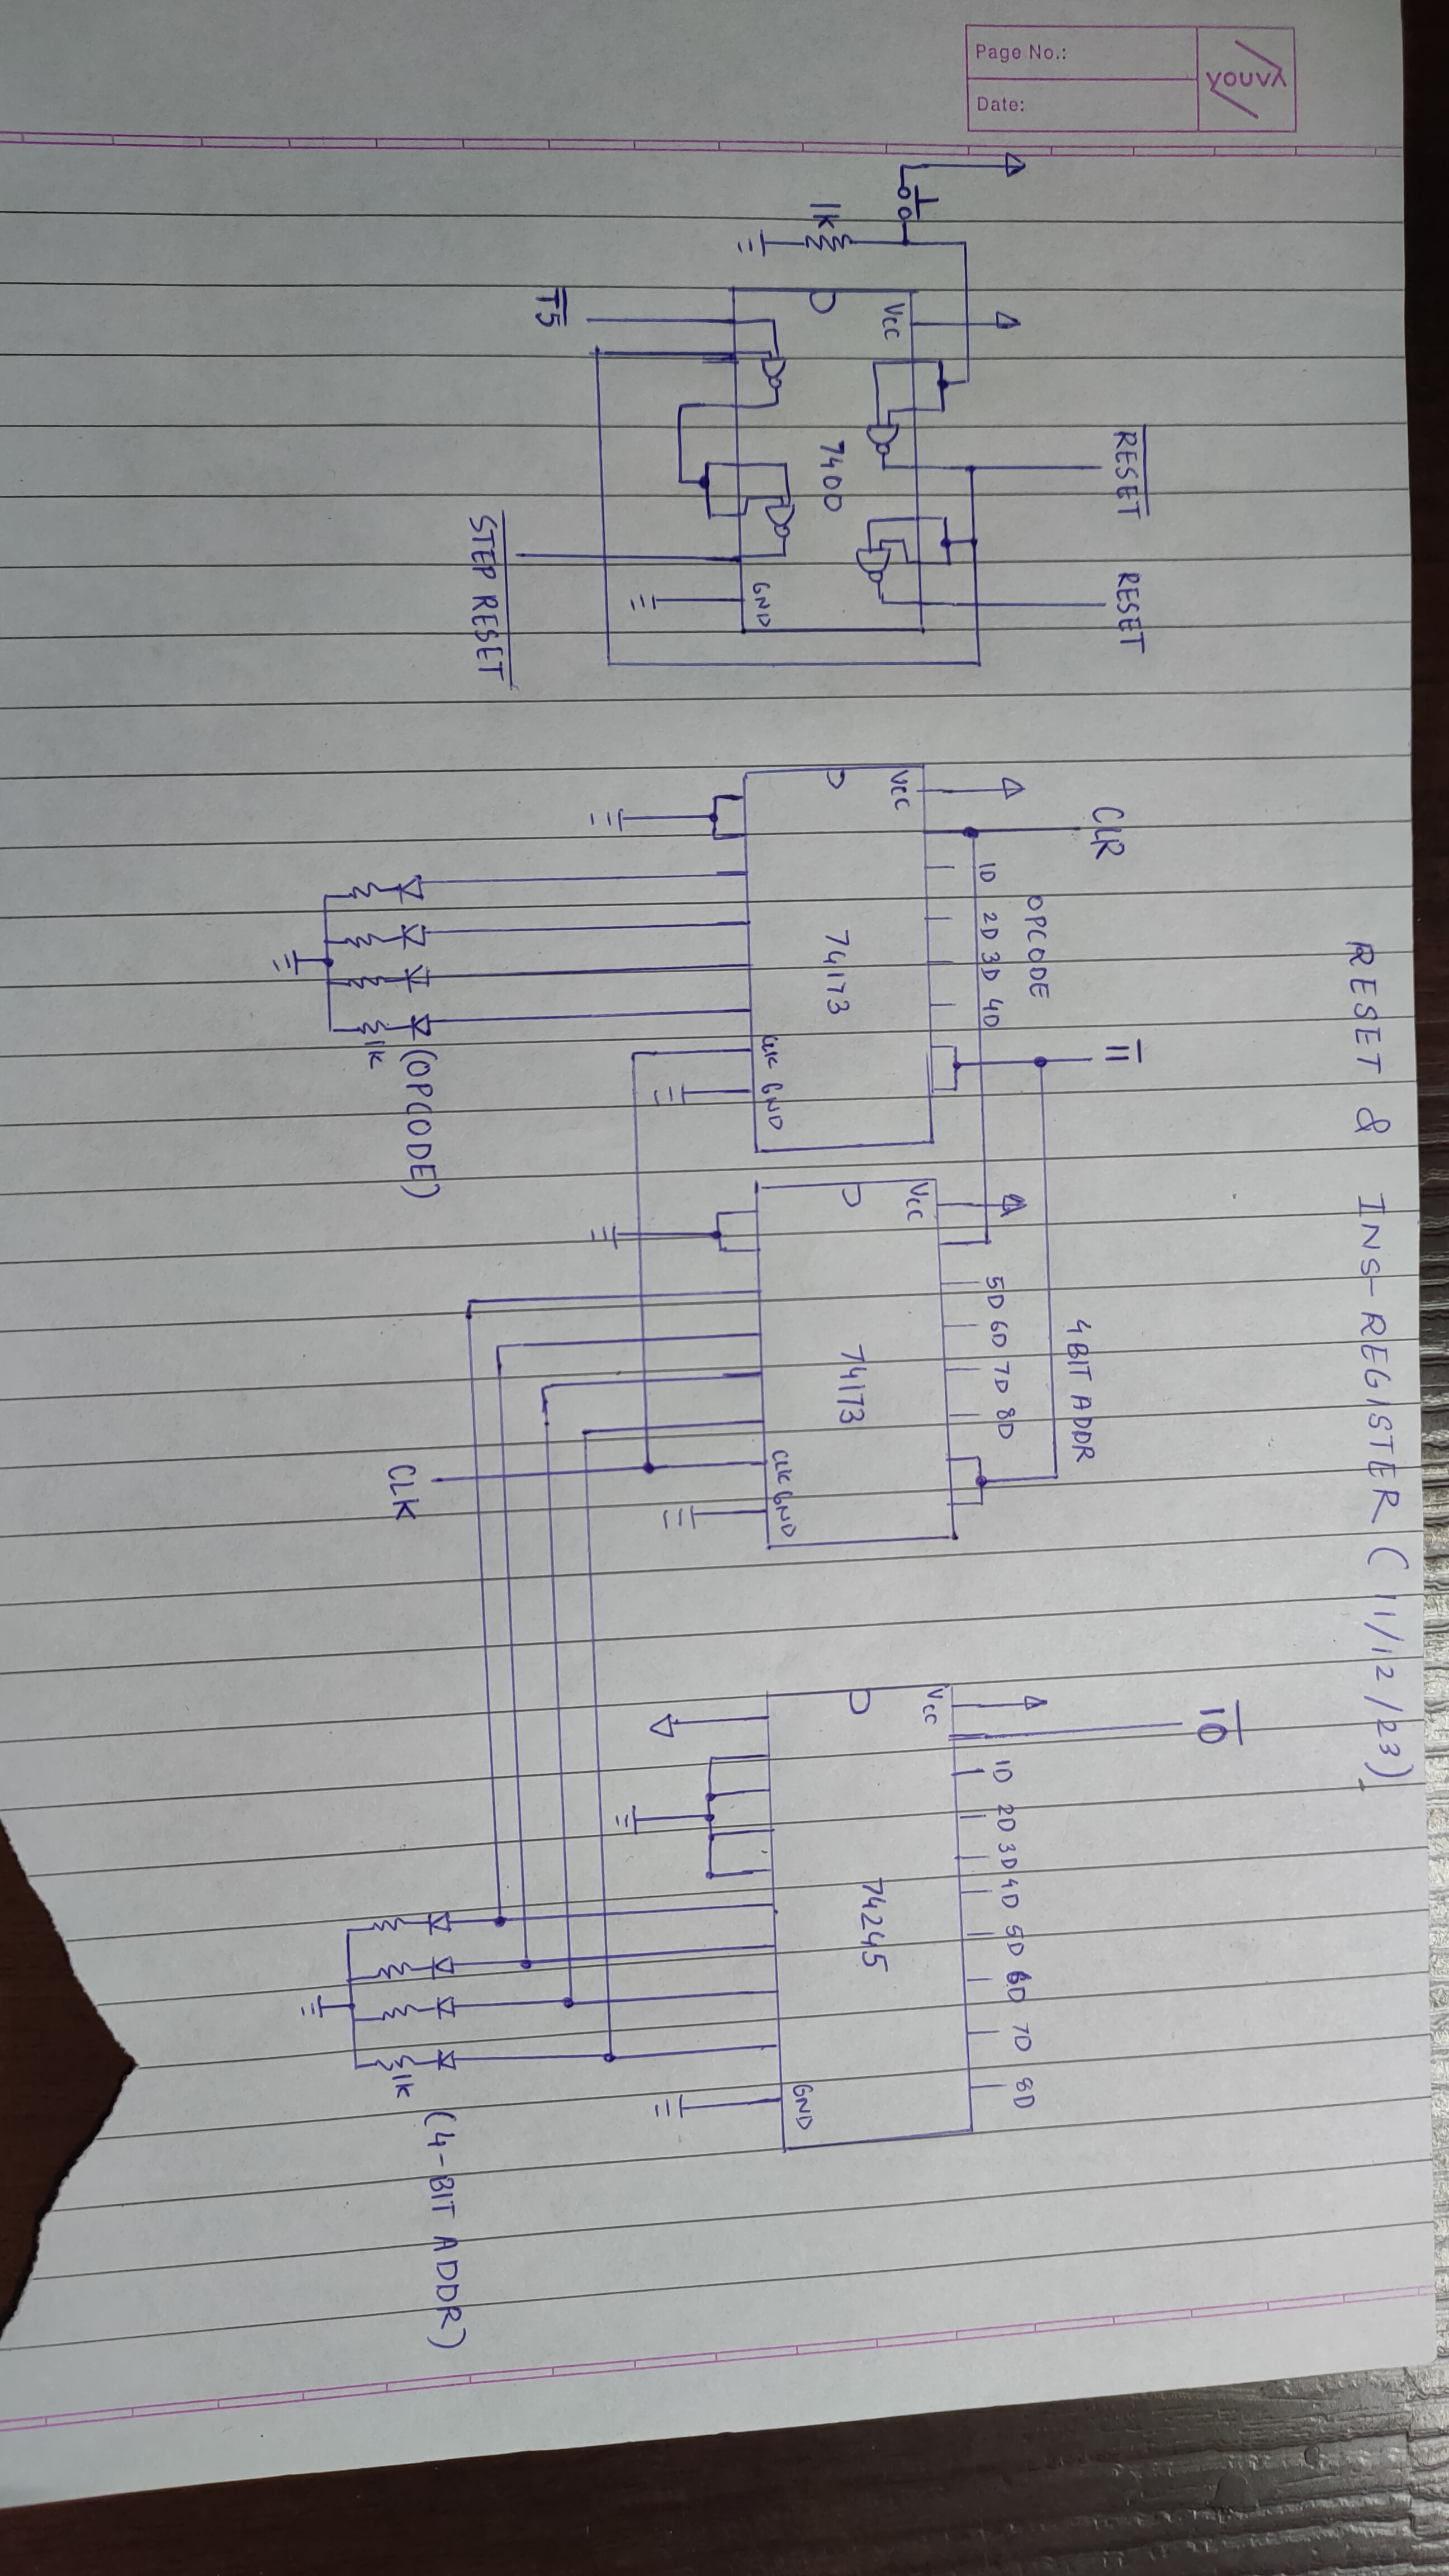 RESET & INS-REGISTER (11/12/23)
youva
Page No.:
Date:
RESET
RESET
Vcc
7400
1K
GND
T5
STEP RESET
CLR
OPCODE
1D 2D 3D 4D
II
Vcc
74173
CLK GND
(OPCODE)
1K
4 BIT ADDR
5D 6D 7D 8D
Vcc
74173
CLK GND
CLK
IO
1D 2D 3D 4D 5D 6D 7D 8D
Vcc
74245
GND
(4-BIT ADDR)
1K